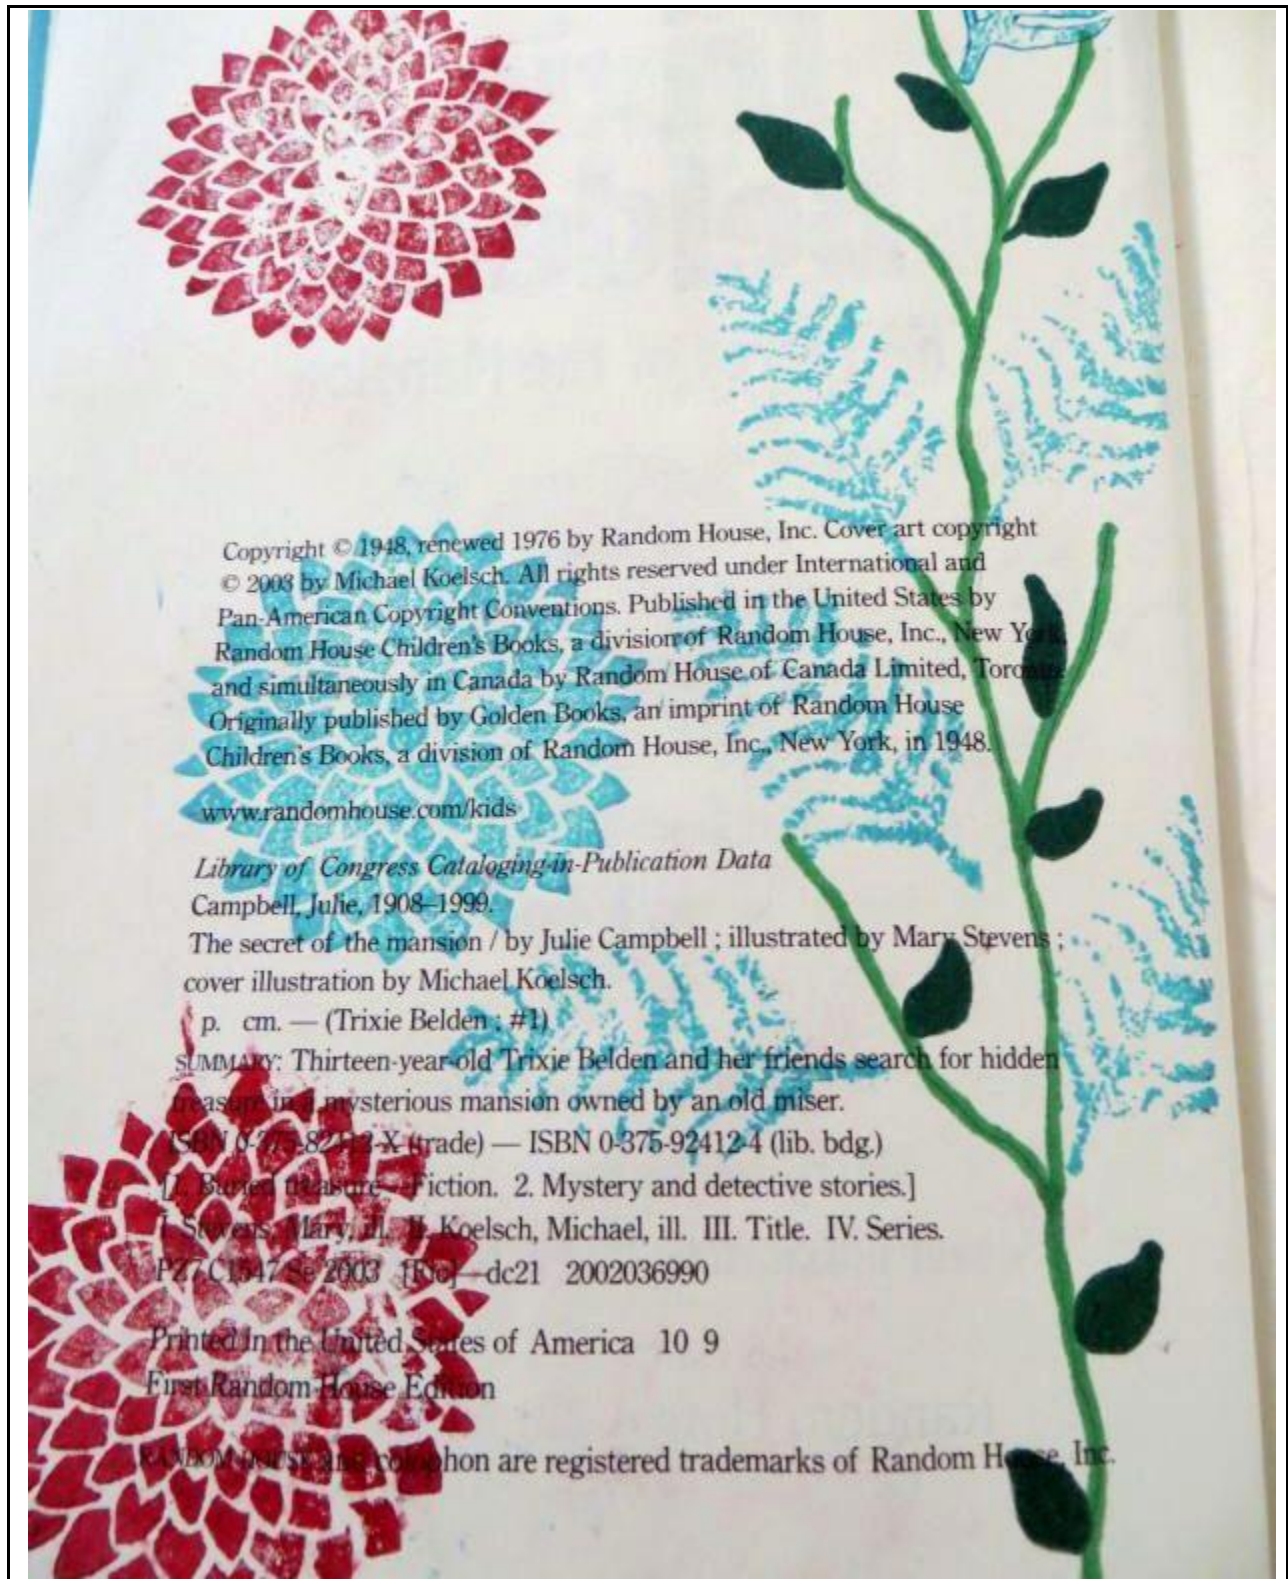 Copyright © 1948, renewed 1976 by Random House, Inc. Cover art copyright
© 2003 by Michael Koelsch. All rights reserved under International and
Pan-American Copyright Conventions. Published in the United States by
Random House Children's Books, a division of Random House, Inc., New York,
and simultaneously in Canada by Random House of Canada Limited, Toronto.
Originally published by Golden Books, an imprint of Random House
Children's Books, a division of Random House, Inc., New York, in 1948.
www.randomhouse.com/kids
Library of Congress Cataloging-in-Publication Data
Campbell, Julie, 1908–1999.
The secret of the mansion / by Julie Campbell ; illustrated by Mary Stevens ;
cover illustration by Michael Koelsch.
p. cm. — (Trixie Belden ; #1)
SUMMARY: Thirteen-year-old Trixie Belden and her friends search for hidden
treasure in a mysterious mansion owned by an old miser.
ISBN 0-375-82412-X (trade) — ISBN 0-375-92412-4 (lib. bdg.)
[1. Buried treasure—Fiction. 2. Mystery and detective stories.]
I. Stevens, Mary, ill. II. Koelsch, Michael, ill. III. Title. IV. Series.
PZ7.C1547 Se 2003 [Fic]—dc21 2002036990
Printed in the United States of America 10 9
First Random House Edition
RANDOM HOUSE and colophon are registered trademarks of Random House, Inc.